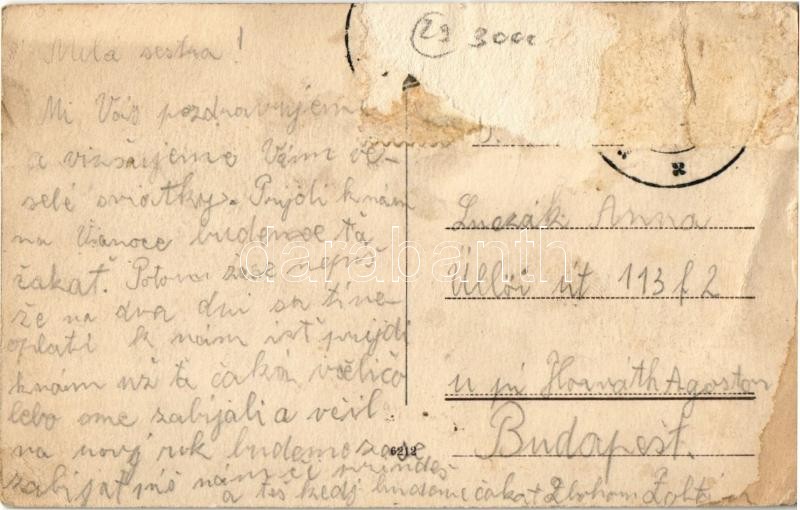 29 3000
Milá sestra!
Mi Vás pozdravujeme
a vizšujeme Vám ve-
selé sviatky. Prijdi k nám
na Vianoce budeme ťa
čakať. Potom
že na dva dni sa ti ne-
oplatí k nám ísť prijdi
k nám už ťa čaká
lebo sme zabíjali a
na nový rok budemo zase
zabíjať
a keď budeme čakať Zbohom
D.
Luczák Anna
Üllői út 113 f 2
u pi Horváth Agoston
Budapest.
6212
darabanth.com